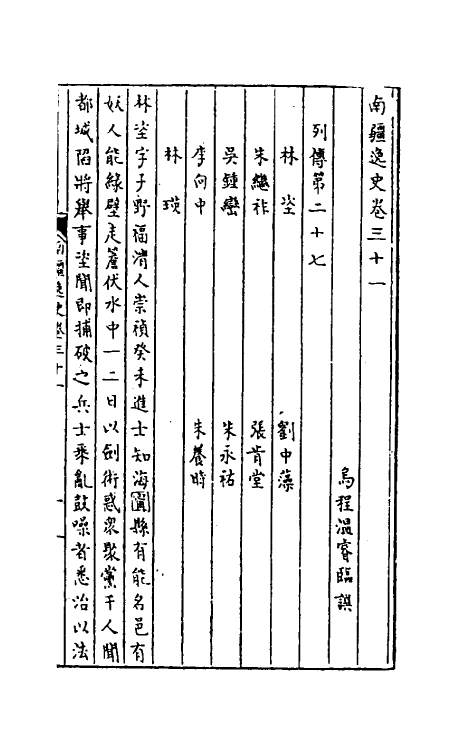 南疆逸史卷三十一
烏程溫睿臨譔
列傳第二十七
林垐 劉中藻
朱繼祚 張肯堂
吳鍾巒 朱永祐
李向中 朱養時
林瑛
林垐字子野福清人崇禎癸未進士知海寧縣有能名邑有
妖人能緣壁走簷伏水中一二日以劍術惑眾聚黨千人聞
都城陷將舉事垐聞即捕破之兵士乘亂鼓噪者悉治以法
南疆逸史卷三十一